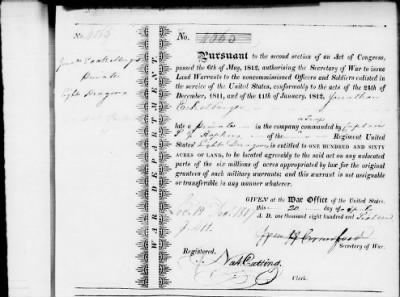 No. 4063
Private
Light Dragoons
WAR DEPARTMENT
No. 4063
Pursuant to the second section of an Act of Congress,
passed the 6th of May, 1812, authorising the Secretary of War to issue
Land Warrants to the noncommissioned Officers and Soldiers enlisted in the
service of the United States, conformably to the acts of the 24th of
December, 1811, and of the 11th of January, 1812, Jonathan
a Troop
late a Private in the company commanded by Captain
Hopkins of the Regiment United
States' Light Dragoons is entitled to ONE HUNDRED AND SIXTY
ACRES OF LAND, to be located agreeably to the said act on any unlocated
parts of the six millions of acres appropriated by law for the original
grantees of such military warrants; and this warrant is not assignable
or transferable in any manner whatever.
GIVEN at the War Office of the United States,
this 20 day of
A. D. one thousand eight hundred and Sixteen
Wm H Crawford
Secretary of War.
Registered.
Nat Cutting
Clerk.